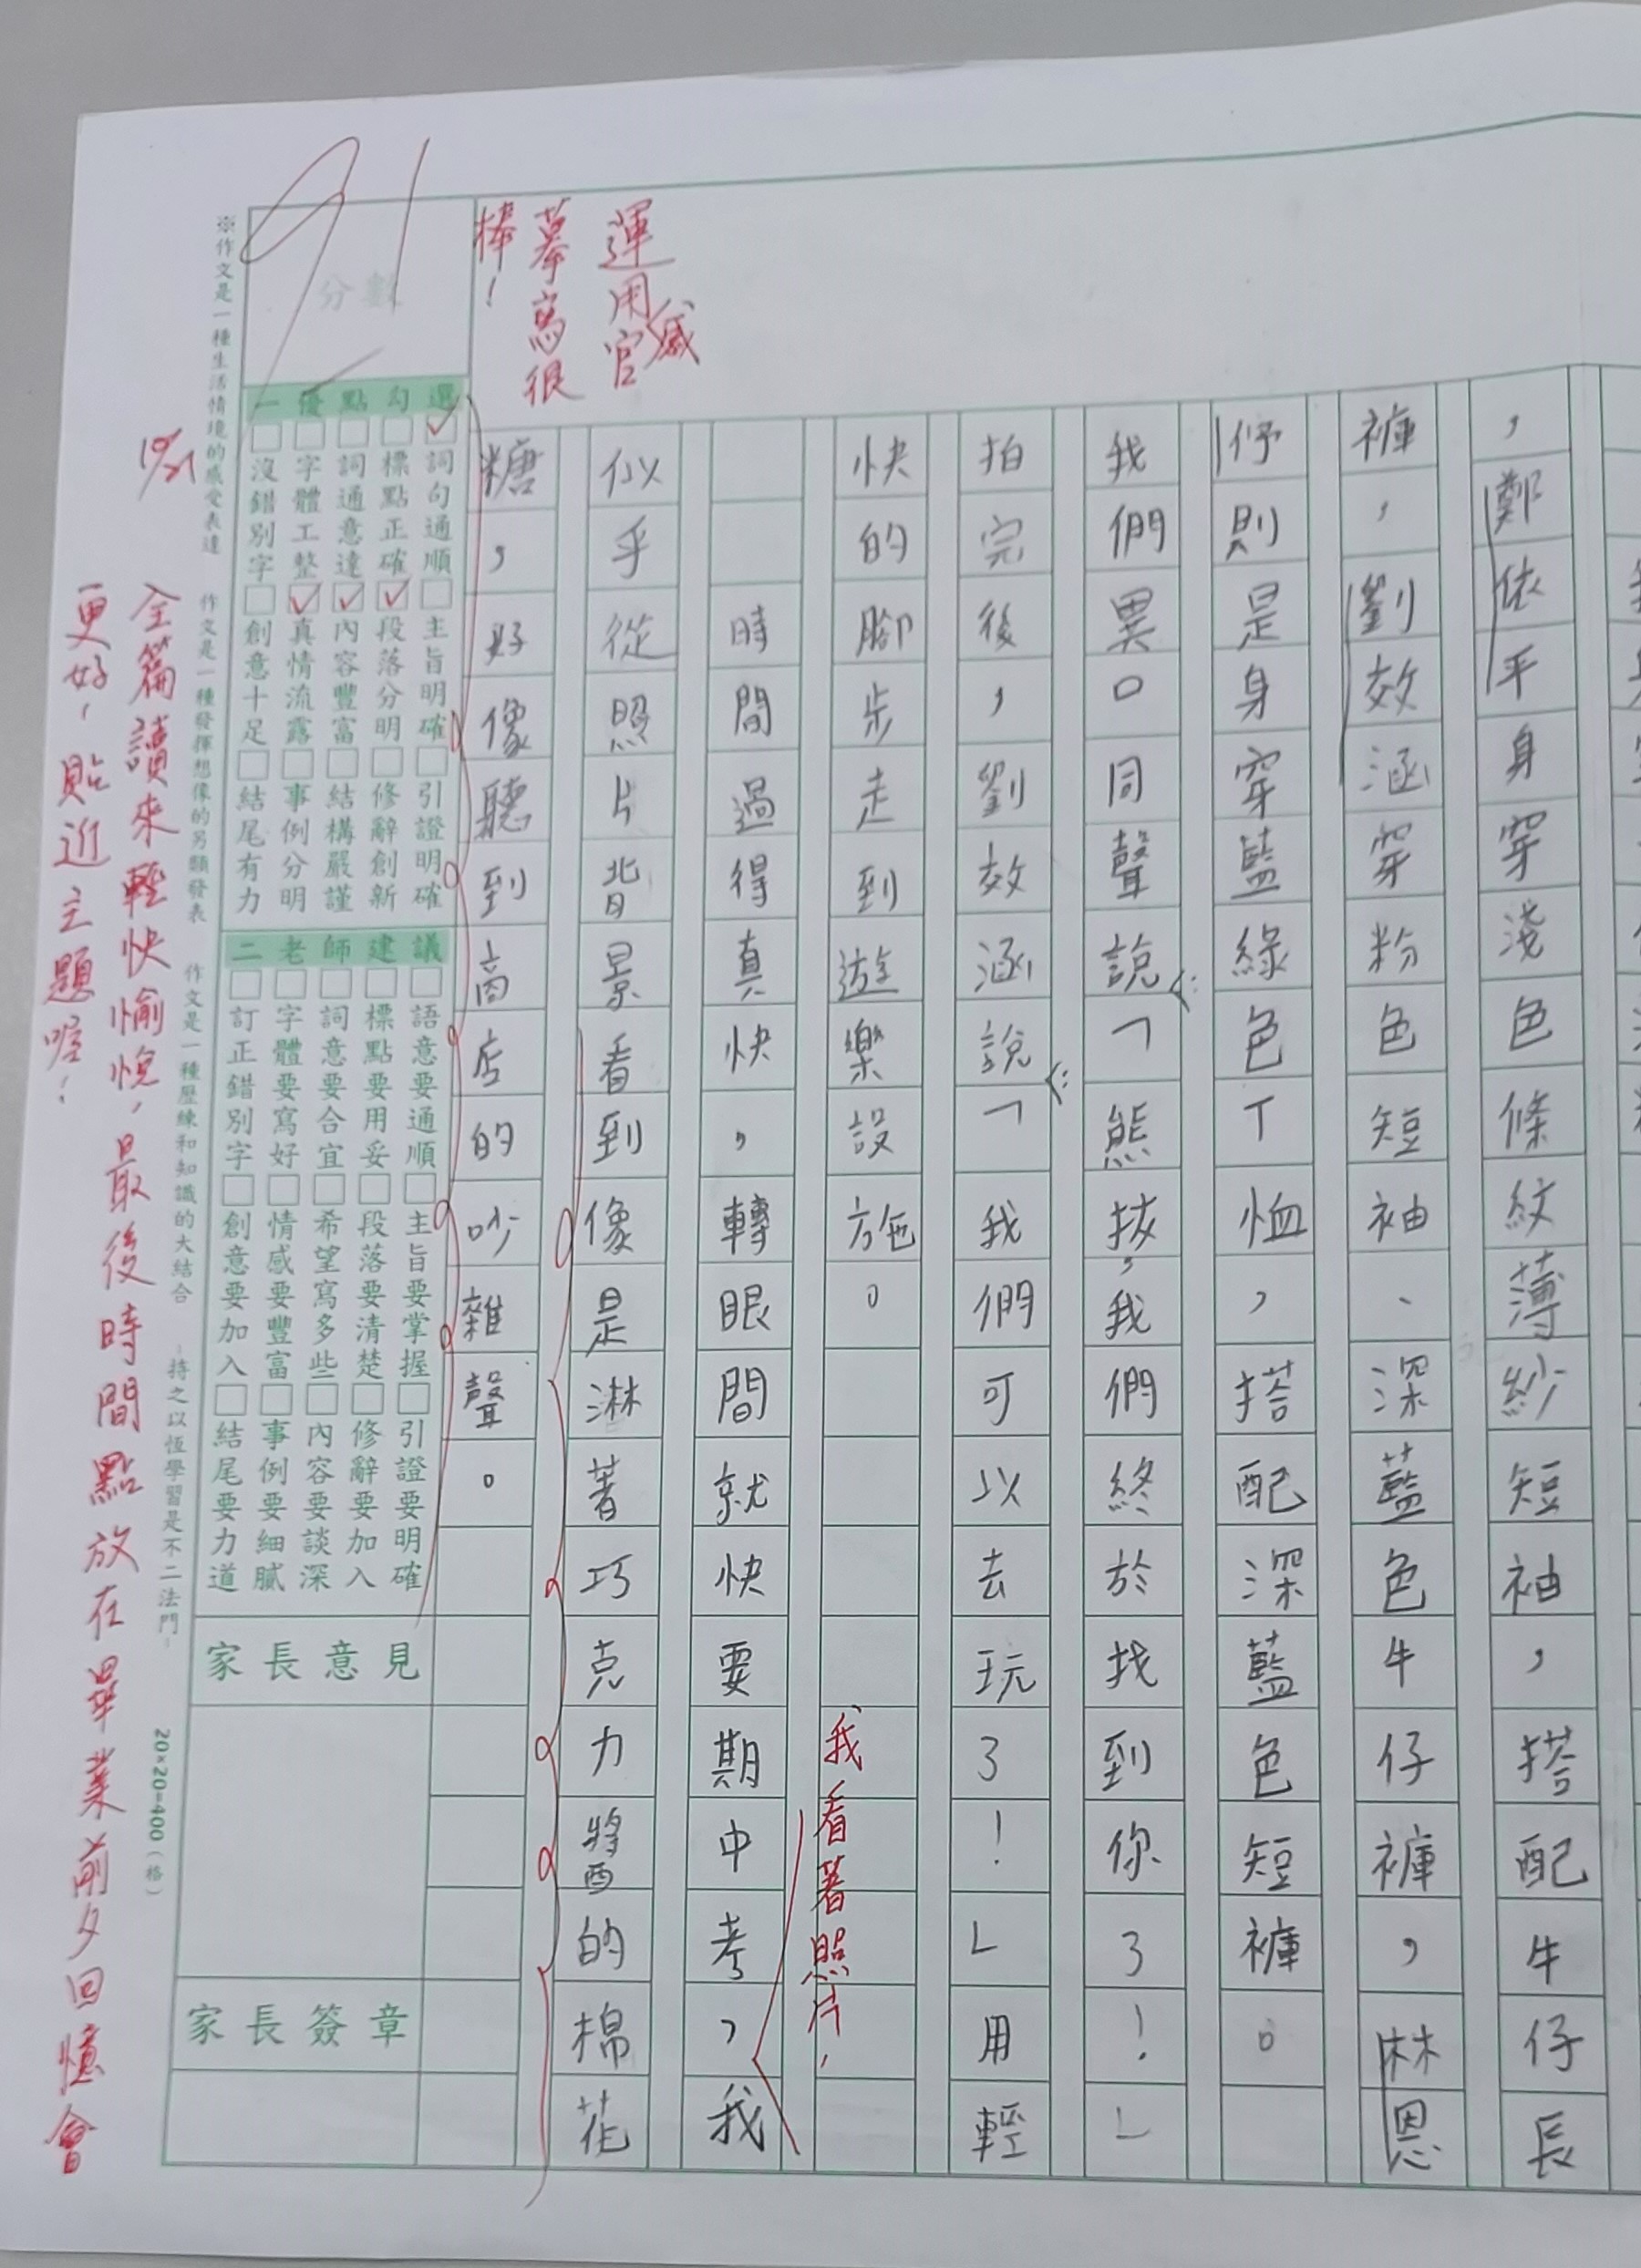 ，鄭依平身穿淺色條紋薄紗短袖，搭配牛仔長
褲，劉效涵穿粉色短袖、深藍色牛仔褲，林恩
伃則是身穿藍綠色T恤，搭配深藍色短褲。
我們異口同聲說：「熊抜，我們終於找到你了！」
拍完後，劉效涵說：「我們可以去玩了！」用輕
快的腳步走到遊樂設施。
我看著照片，
時間過得真快，轉眼間就快要期中考，我
似乎從照片背景看到像是淋著巧克力醬的棉花
糖，好像聽到商店的吵雜聲。
運用感官
摹寫很
棒！
91
分數
一優點勾選
詞句通順 主旨明確 引證明確
標點正確 段落分明 修辭創新
詞通意達 內容豐富 結構嚴謹
字體工整 真情流露 事例分明
沒錯別字 創意十足 結尾有力
二老師建議
語意要通順 主旨要掌握 引證要明確
標點要用妥 段落要清楚 修辭要加入
詞意要合宜 希望寫多些 內容要談深
字體要寫好 情感要豐富 事例要細膩
訂正錯別字 創意要加入 結尾要力道
家長意見
家長簽章
※作文是一種生活情境的感受表達 作文是一種發揮想像的另類發表 作文是一種歷練和知識的大結合 -持之以恆學習是不二法門-
20×20=400（格）
10/21
全篇讀來輕快愉悅，最後時間點放在畢業前夕回憶會
更好，貼近主題喔！